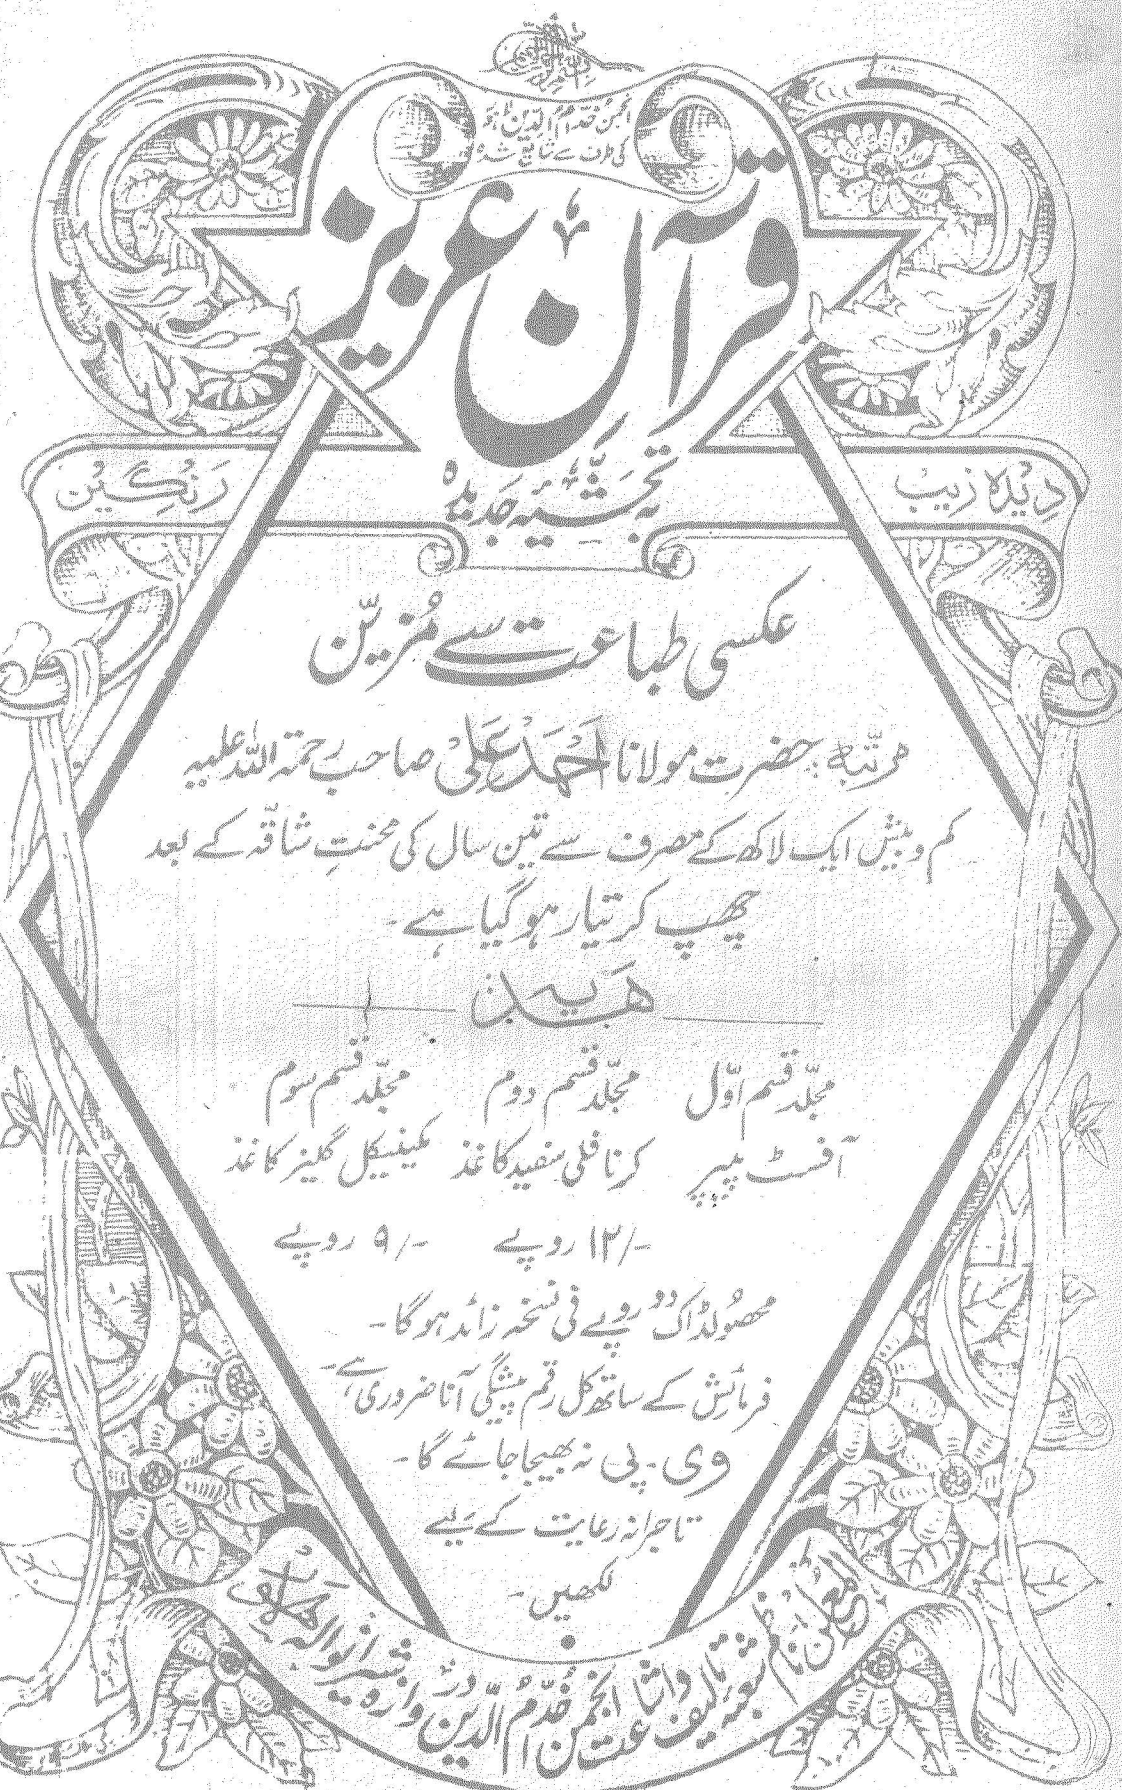 انجمن خدّام الدّین لاہور
کی طرف سے شایع شدہ
قرآن عزیز
دیدہ زیب
بہ تحشیہ جدیدہ
رنگین
عکسی طباعت سے مُزیّن
مرتّبہ: حضرت مولانا احمد علی صاحب رحمۃ اللہ علیہ
کم و بیش ایک لاکھ کے مصرف سے تین سال کی محنتِ شاقّہ کے بعد
چھپ کر تیار ہو گیا ہے۔
ھدیہ
مجلّد قسم اوّل مجلّد قسم دوم مجلّد قسم سوم
آفسٹ پیپر کرنافلی سفید کاغذ مکینیکل گلیز کاغذ
۱۲/- روپے ۹/- روپے
محصولڈاک دو روپے فی نسخہ زائد ہوگا۔
فرمائش کے ساتھ کل رقم پیشگی آنا ضروری ہے۔
وی۔پی نہ بھیجا جائے گا۔
تاجرانہ رعایت کے لیے
لکھیں۔
المعلن ناظم شعبہ تالیف و اشاعت انجمن خدّام الدّین دروازہ شیرانوالہ لاہور